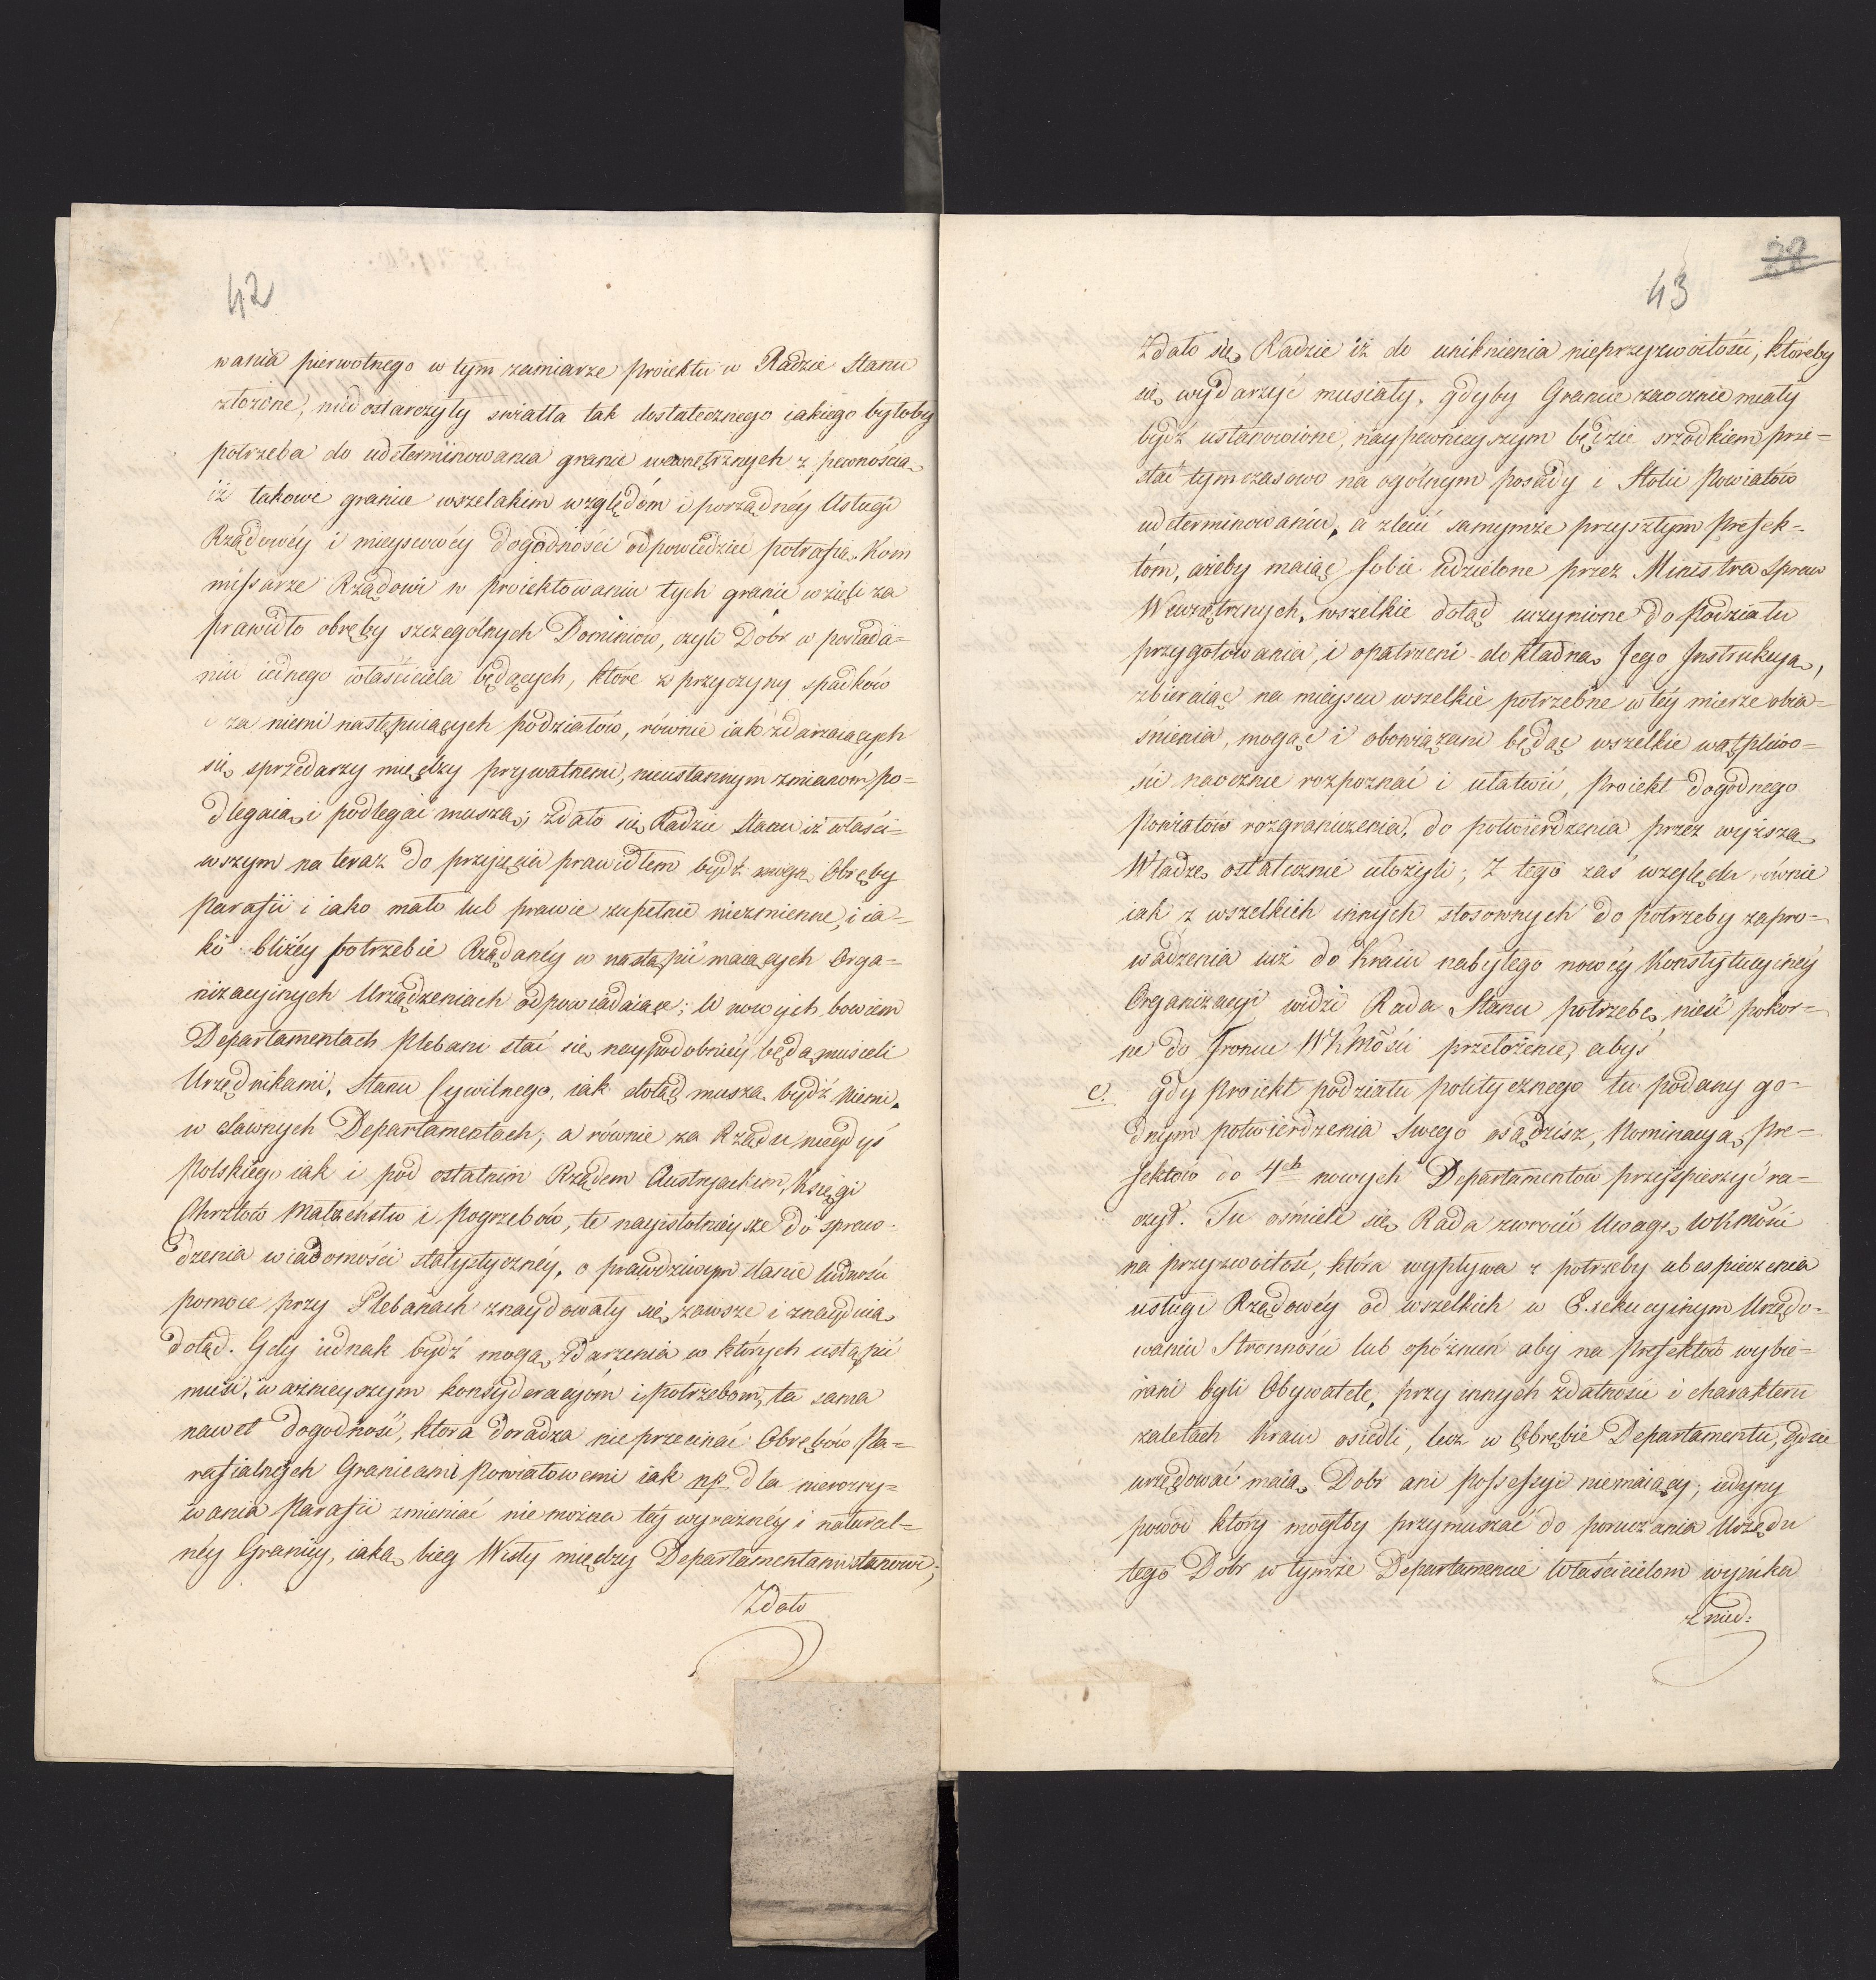 42
wania pierwotnego w tym zamiarze proiektu w Radzie Stanu
złożone, niedostarczyły swiatła tak dostatecznego iakiego byłoby
potrzeba do udeterminowania granic wewnętrznych z pewnością
iż takowe granice wszelakim względóm i porządnéy Usługi
Rządowéy i mieyscowéy dogodności odpowiedziec potrafią. Kom
missarze Rządowi w proiektowaniu tych granic wzięli za
prawidło obręby szczególnych Dominiow, czyli Dóbr w posiada=
niu iednego właściciela będących, które z przyczyny spadkow
i za niemi następuiących podziałów, równie iak zdarzaiących
się sprzedarzy między prywatnemi, nieustannym zmianóm po=
dlegaią i podlegać muszą; zdało się Radzie Stanu iż właści=
wszym na teraz do przyięcia prawidłem bydź mogą Obręby
Parafii i iako mało lub prawie zupełnie niezmienne, i ia=
ko bliżéy potrzebie Rządowéy w nastąpić maiących Orga=
nizacyinych Urządzeniach odpowiadaiące; W nowych bowiem
Departamentach Plebani stać się naypodobniéy będą musieli
Urzędnikami, Stanu Cywilnego, iak dotąd muszą bydź niemi
w dawnych Departamentach; a równie za Rządu niegdyś
Polskiego iak i pod ostatnim Rządem Austryackim, Księgi
Chrztów Małżeństw i Pogrzebów, te nayistotnieysze do spraw=
dzenia wiadomości statystycznéy, o prawdziwym stanie ludności
pomoce przy Plebanach znaydowały się zawsze i znayduią
dotąd. Gdy iednak bydź mogą zdarzenia w których ustąpić
musi, ważnieyszym konsyderacyóm i potrzebom, ta sama
nawet dogodność, ktora doradza nieprzecinać Obrębów Pa=
rafialnych Granicami Powiatowemi iak np. dla nierozry=
wania Parafii zmieniać nie można téy wyraźnéy i natural=
néy Granicy, iaką bieg Wisły między Departamentami stanowi;
Zdało
43
Zdało się Radzie iż do uniknienia nieprzyzwoitości, któreby
się wydarzyć musiały, gdyby Granice zaocznie miały
bydź ustanowione, naypewnieyszym będzie srzodkiem prze=
stać tymczasowo na ogólnym posady i Stolic Powiatów
udeterminowaniu, a zlecić samymże przyszłym Prefek=
tóm, ażeby maiąc sobie udzielone przez Ministra Spraw
Wewnętrznych, wszelkie dotąd uczynione do Podziału
przygotowania, i opatrzeni dokładną Jego Instrukcyą,
zbieraiąc na mieyscu wszelkie potrzebne w téy mierze obia=
śnienia, mogąc i obowiązani będąc wszelkie wątpliwo=
ści naocznie rozpoznać i ułatwić, Proiekt dogodnego
Powiatów rozgraniczenia, do potwierdzenia przez wyższą
Władzę ostatecznie ułożyli; Z tego zaś względu równie
iak z wszelkich innych stosownych do potrzeby zapro=
wadzenia iuż do Kraiu nabytego nowéy Konstytucyinéy
Organizacyi widzi Rada Stanu potrzebę nieść pokor=
ne do Tronu WKMości przełożenie, abyś
c. gdy Proiekt podziału politycznego tu podany go=
dnym potwierdzenia Swego osądzisz, Nominacyą Pre=
fektow do 4ch nowych Departamentów przyspieszyć ra=
czył. Tu ośmiela się Rada zwrocić Uwagę WKMości
na przyzwoitość, która wypływa z potrzeby ubespieczenia
usługi Rządowéy od wszelkich w Exekucyinym Urzędo=
waniu Stronności lub opóźnień aby na Prefektów wybie=
rani byli Obywatele, przy innych zdatności i charakteru
zaletach Kraiu osiedli, lecz w Obrębie Departamentu, gdzie
urzędować maią Dobr ani Possessyi niemaiący; iedyny
powod który mogłby przymuszać do poruczania Urzędu
tego Dóbr w tymże Departamencie Właścicielom wynika
z nied: